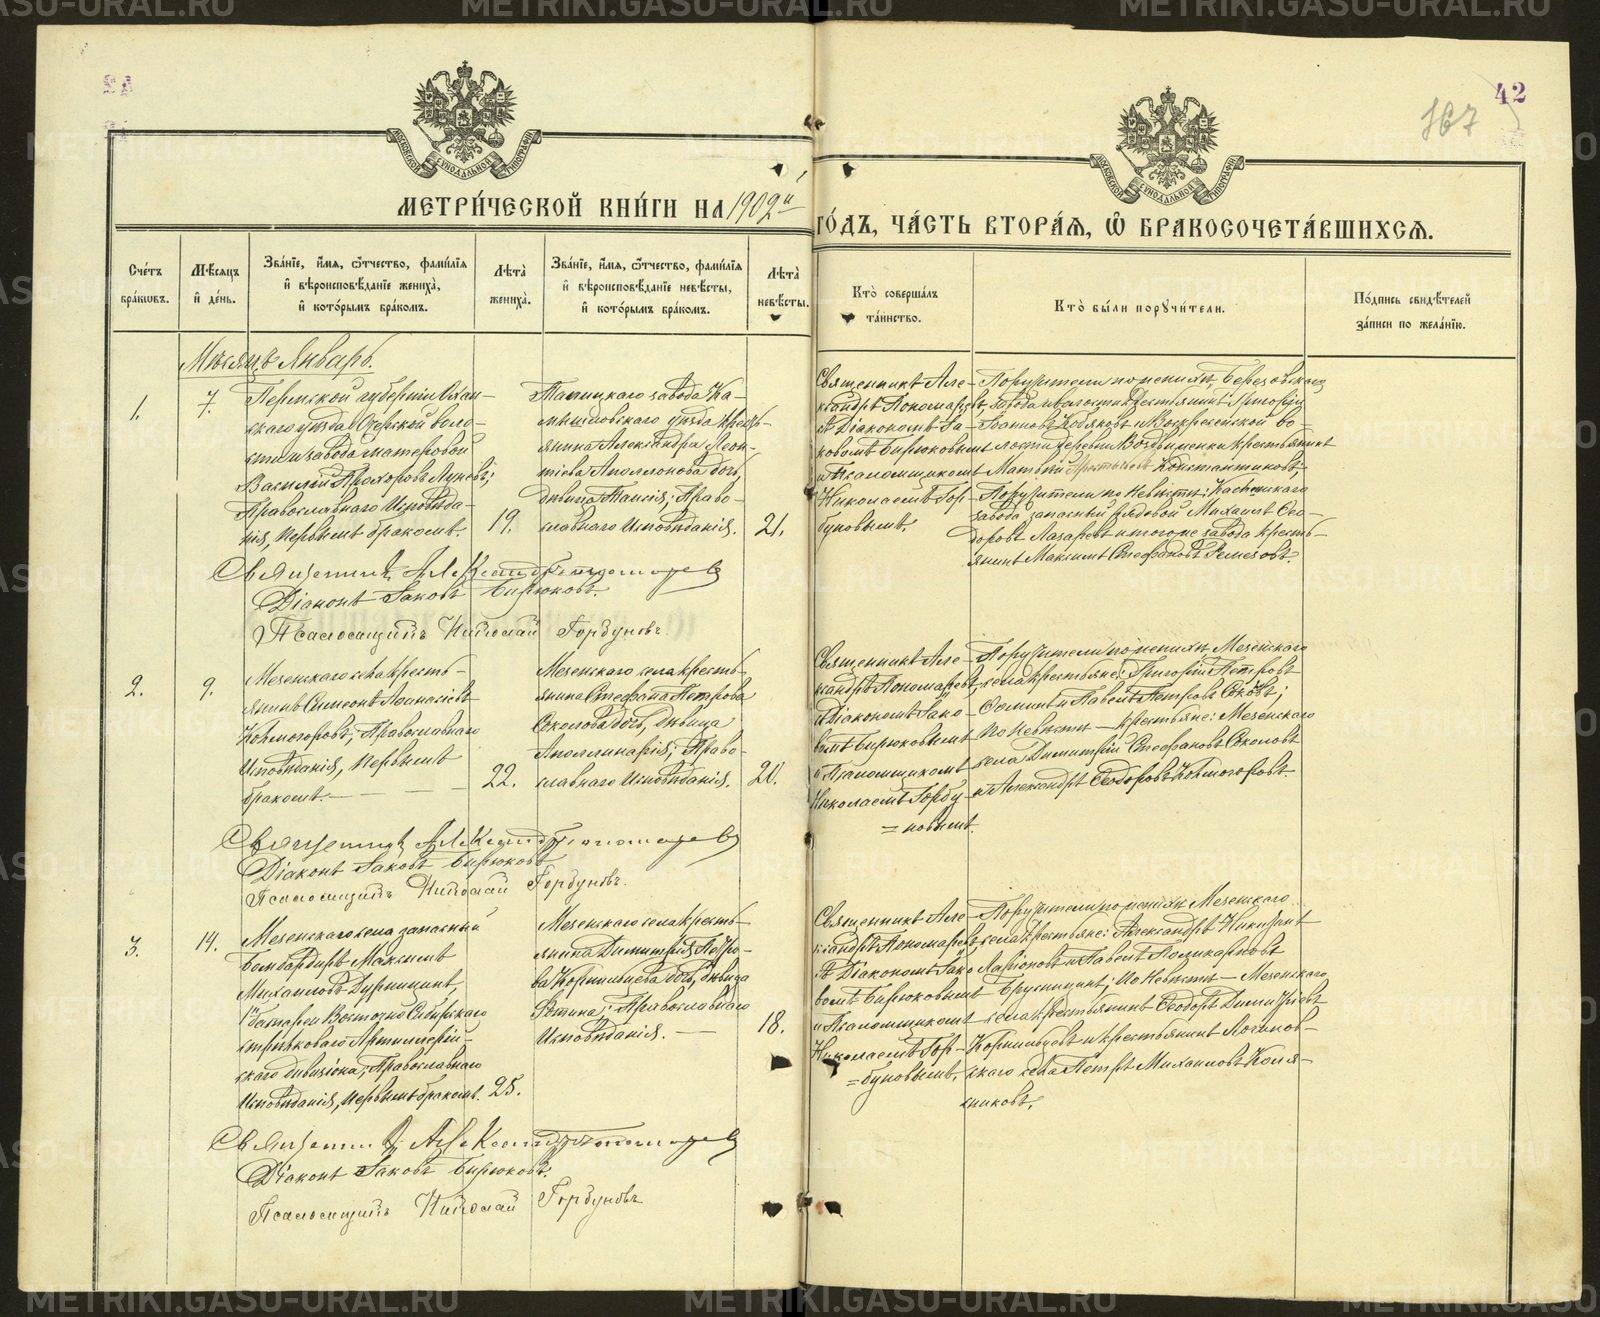 42
167
МЕТРИ́ЧЕСКОЙ КНИ́ГИ НА 1902й ГО́ДЪ, ЧА́СТЬ ВТОРА́Ѧ, Ѽ БРАКОСОЧЕТА́ВШИХСѦ.
Сче́тъ бра́кѡвъ.
Мѣ́сѧцъ и҆ де́нь.
Зва́нїе, и҆́мѧ, ѻ҆́тчество, фамі́лїѧ и҆ вѣроисповѣ́данїе жениха̀, и҆ кото́рымъ бра́комъ.
Лѣта̀ жениха̀.
Зва́нїе, и҆́мѧ, ѻ҆́тчество, фамі́лїѧ и҆ вѣроисповѣ́данїе невѣ́сты, и҆ кото́рымъ бра́комъ.
Лѣта̀ невѣ́сты.
Кто̀ соверша́лъ та́инство.
Кто̀ бы́ли порꙋчи́тели.
По́дпись свидѣ́телей за́писи по жела́нїю.
Мѣсяцъ Январь.
1.
7.
Пермской губерніи Охан-
скаго уѣзда Очерской воло-
сти и завода мастеровой
Василій Прохоровъ Луневъ;
Православнаго Исповѣда-
нія, первымъ бракомъ.
19.
Талицкаго завода Ка-
мышловскаго уѣзда кресть-
янина Александра Леон-
тіева Аполлонова дочь,
дѣвица Таисія; Право-
славнаго Исповѣданія.
21.
Священникъ Але-
ксандръ Пономаревъ
съ Діакономъ Іа-
ковомъ Бирюковымъ
и Псаломщикомъ
Николаемъ Гор-
буновымъ.
Поручители по женихѣ; Березовскаго
завода и волости крестьянинъ Григорій
Іоанновъ Кобяковъ и Воскресенской во-
лости деревни Воздвиженки крестьянинъ
Матвѣй Константиновъ;
Поручители по Невѣстѣ: Каслинскаго
завода запасный рядовой Михаилъ Ѳео-
доровъ Лазаревъ и того же завода кресть-
янинъ Максимъ Стефановъ Ремезовъ.
Священникъ Александръ Пономаревъ
Діаконъ Іаковъ Бирюковъ.
Псаломщикъ Николай Горбуновъ.
2.
9.
Мезенскаго села кресть-
янинъ Симеонъ Аѳанасіевъ
Колмогоровъ; Православнаго
Исповѣданія, первымъ
бракомъ.
22.
Мезенскаго села кресть-
янина Стефана Петрова
Соколова дочь, дѣвица
Аполлинарія; Право-
славнаго Исповѣданія.
20.
Священникъ Але-
ксандръ Пономаревъ
съ Діакономъ Іако-
вомъ Бирюковымъ
и Псаломщикомъ
Николаемъ Горбу-
=новымъ.
Поручители по женихѣ; Мезенскаго
села крестьяне: Григорій Петровъ
Ѳоминъ и Павелъ Петровъ Соковъ;
По Невѣстѣ — крестьяне: Мезенскаго
села Димитрій Стефановъ Соколовъ
и Александръ Ѳеодоровъ Колмогоровъ
Священникъ Александръ Пономаревъ
Діаконъ Іаковъ Бирюковъ
Псаломщикъ Николай Горбуновъ.
3.
14.
Мезенскаго села запасный
Бомбардиръ Максимъ
Михаиловъ Дурницинъ,
1й батареи Восточно Сибирскаго
стрѣлковаго Артиллерій-
скаго дивизіона; Православнаго
Исповѣданія, первымъ бракомъ.
25.
Мезенскаго села кресть-
янина Димитрія Петро-
ва Кормильцева дочь, дѣвица
Фотина; Православнаго
Исповѣданія.
18.
Священникъ Але-
ксандръ Пономаревъ
съ Діакономъ Іако-
вомъ Бирюковымъ
и Псаломщикомъ
Николаемъ Гор-
=буновымъ.
Поручители по женихѣ Мезенскаго
села крестьяне: Александръ Никитинъ
Ларіоновъ и Павелъ Поликарповъ
Брусницинъ; по Невѣстѣ — Мезенскаго
села крестьянинъ Ѳеодоръ Димитріевъ
Кормильцевъ и крестьянинъ Логинов-
скаго села Петръ Михаиловъ Коля-
сниковъ.
Священникъ Александръ Пономаревъ
Діаконъ Іаковъ Бирюковъ.
Псаломщикъ Николай Горбуновъ
METRIKI.GASU-URAL.RU